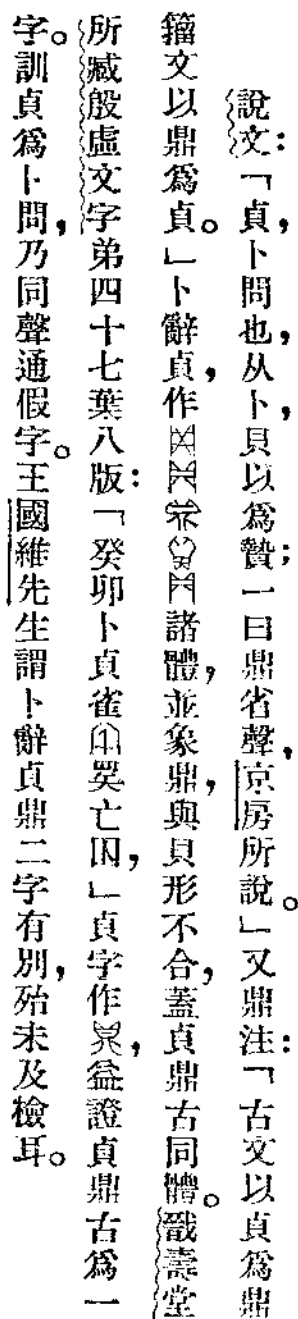 說文：「貞，卜問也，从卜，貝以爲贄；一曰鼎省聲，京房所說。」又鼎注：「古文以貞爲鼎
籀文以鼎爲貞。」卜辭貞，作諸體，並象鼎，與貝形不合，蓋貞鼎古同體。戩壽堂
所臧殷虛文字弟四十七葉八版：「癸卯卜貞雀亡𡆥，」貞字作，益證貞鼎古爲一
字。訓貞爲卜問，乃同聲通假字。王國維先生謂卜辭貞鼎二字有別，殆未及檢耳。